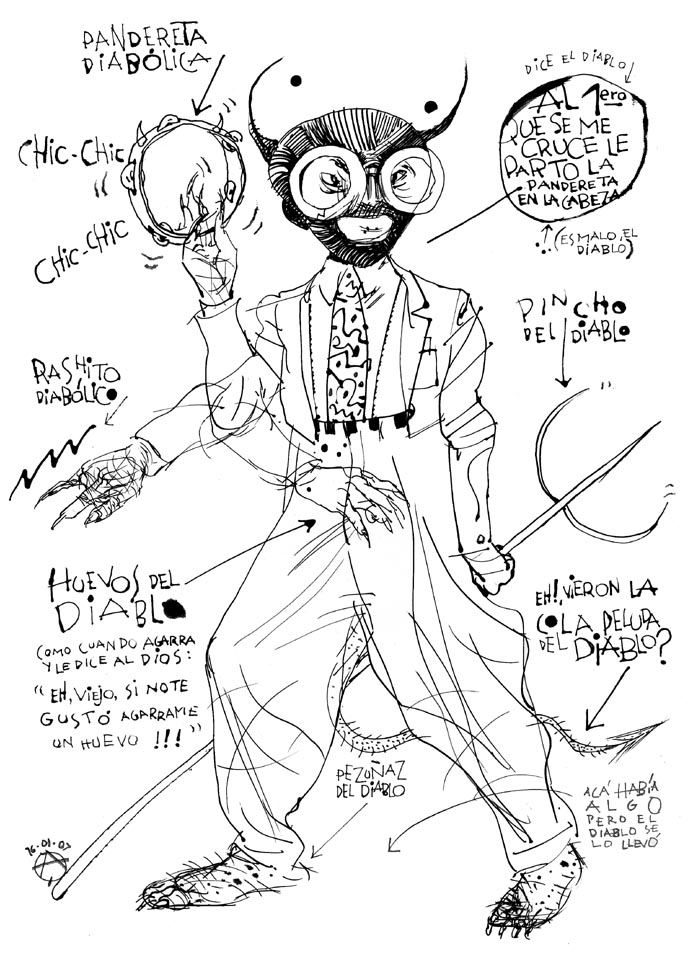 PANDERETA
DIABÓLICA
CHIC-CHIC
CHIC-CHIC
DICE EL DIABLO!
AL 1ero
QUE SE ME
CRUCE LE
PARTO LA
PANDERETA
EN LA CABEZA
(ES MALO, EL
DIABLO)
PINCHO
DEL DIABLO
RASHITO
DIABÓLICO
HUEVOS DEL
DIABLO
COMO CUANDO AGARRA
Y LE DICE AL DIOS:
"EH, VIEJO, SI NO TE
GUSTÓ AGARRAME
UN HUEVO!!!"
EH!, VIERON LA
COLA PELUDA
DEL DIABLO?
PEZUÑAZ
DEL DIABLO
ACÁ HABÍA
ALGO
PERO EL
DIABLO SE
LO LLEVÓ